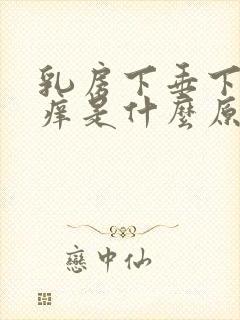 乳房下垂下
痒是什麼原
戀中仙